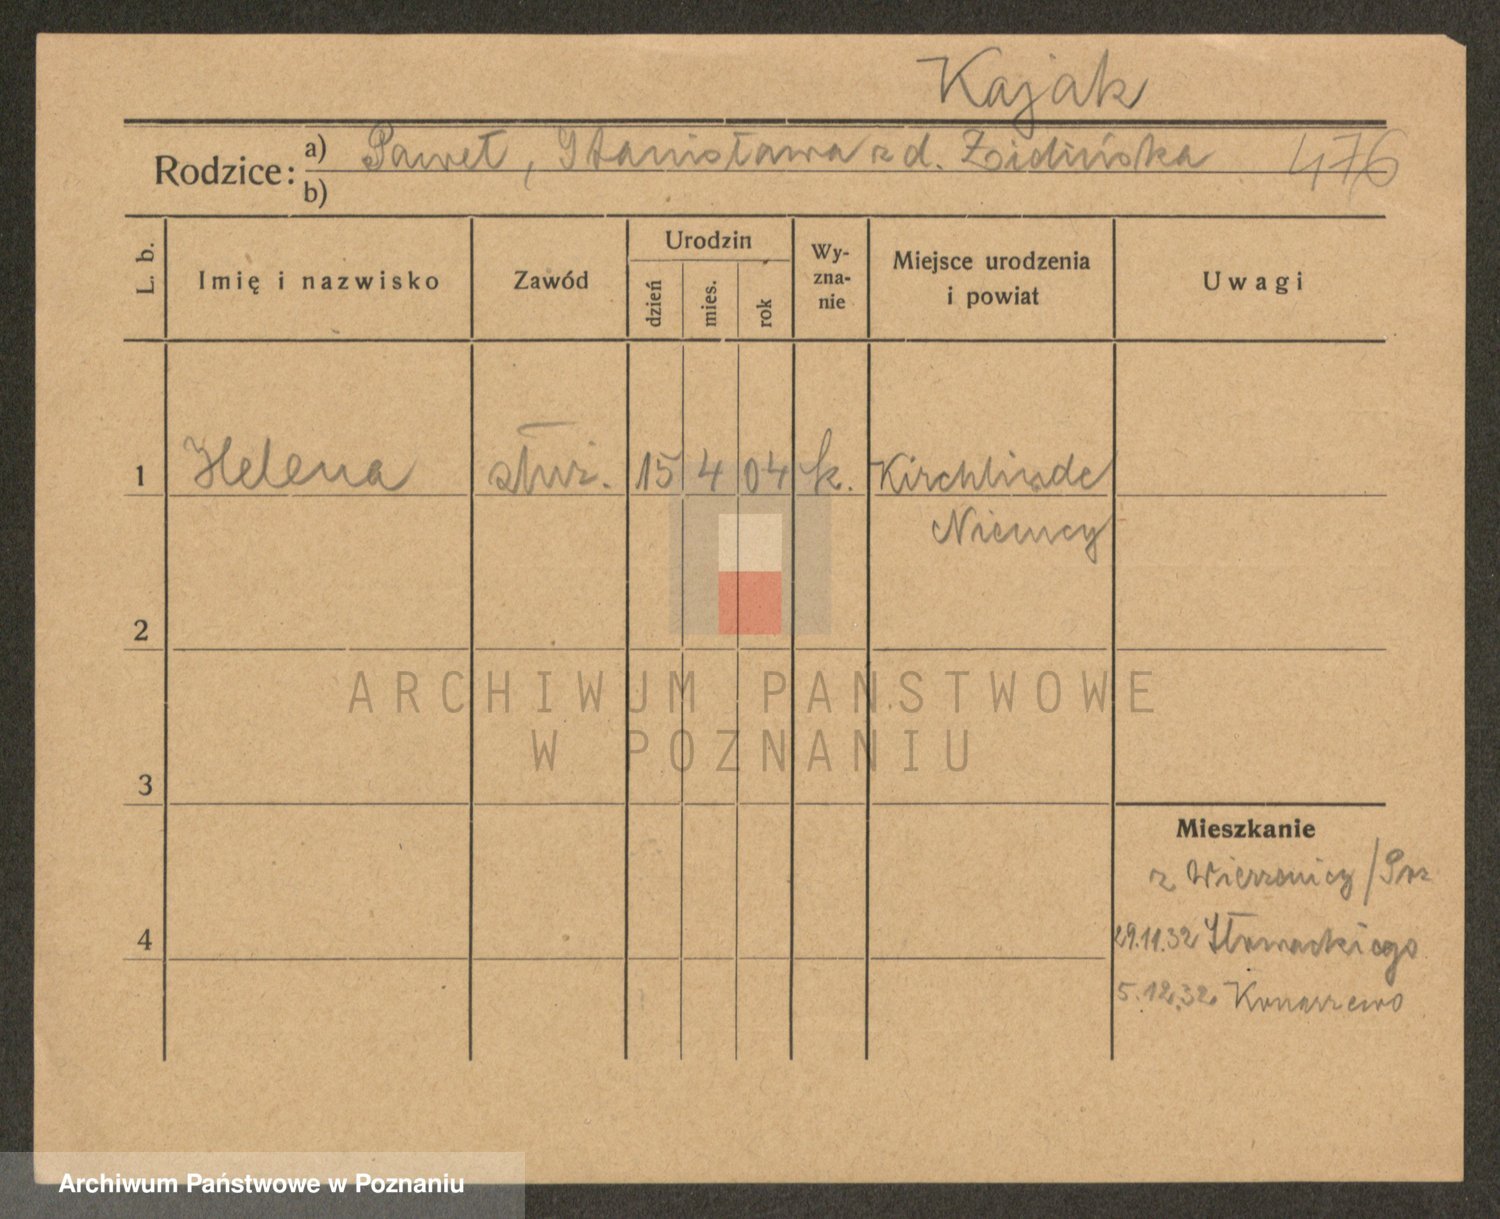 Kajak
Rodzice: a) Paweł, Stanisława z d. Zidińska 476
b)
L. b. Imię i nazwisko Zawód Urodzin dzień mies. rok Wy-zna-nie Miejsce urodzenia i powiat Uwagi
1 Helena służ. 15 4 04 k. Kirchlinde
Niemcy
2
3
Mieszkanie
z Wierzenicy / Poz
4
29.11.32 Słowackiego
5.12.32. Konarzewo
ARCHIWUM PAŃSTWOWE
W POZNANIU
Archiwum Państwowe w Poznaniu